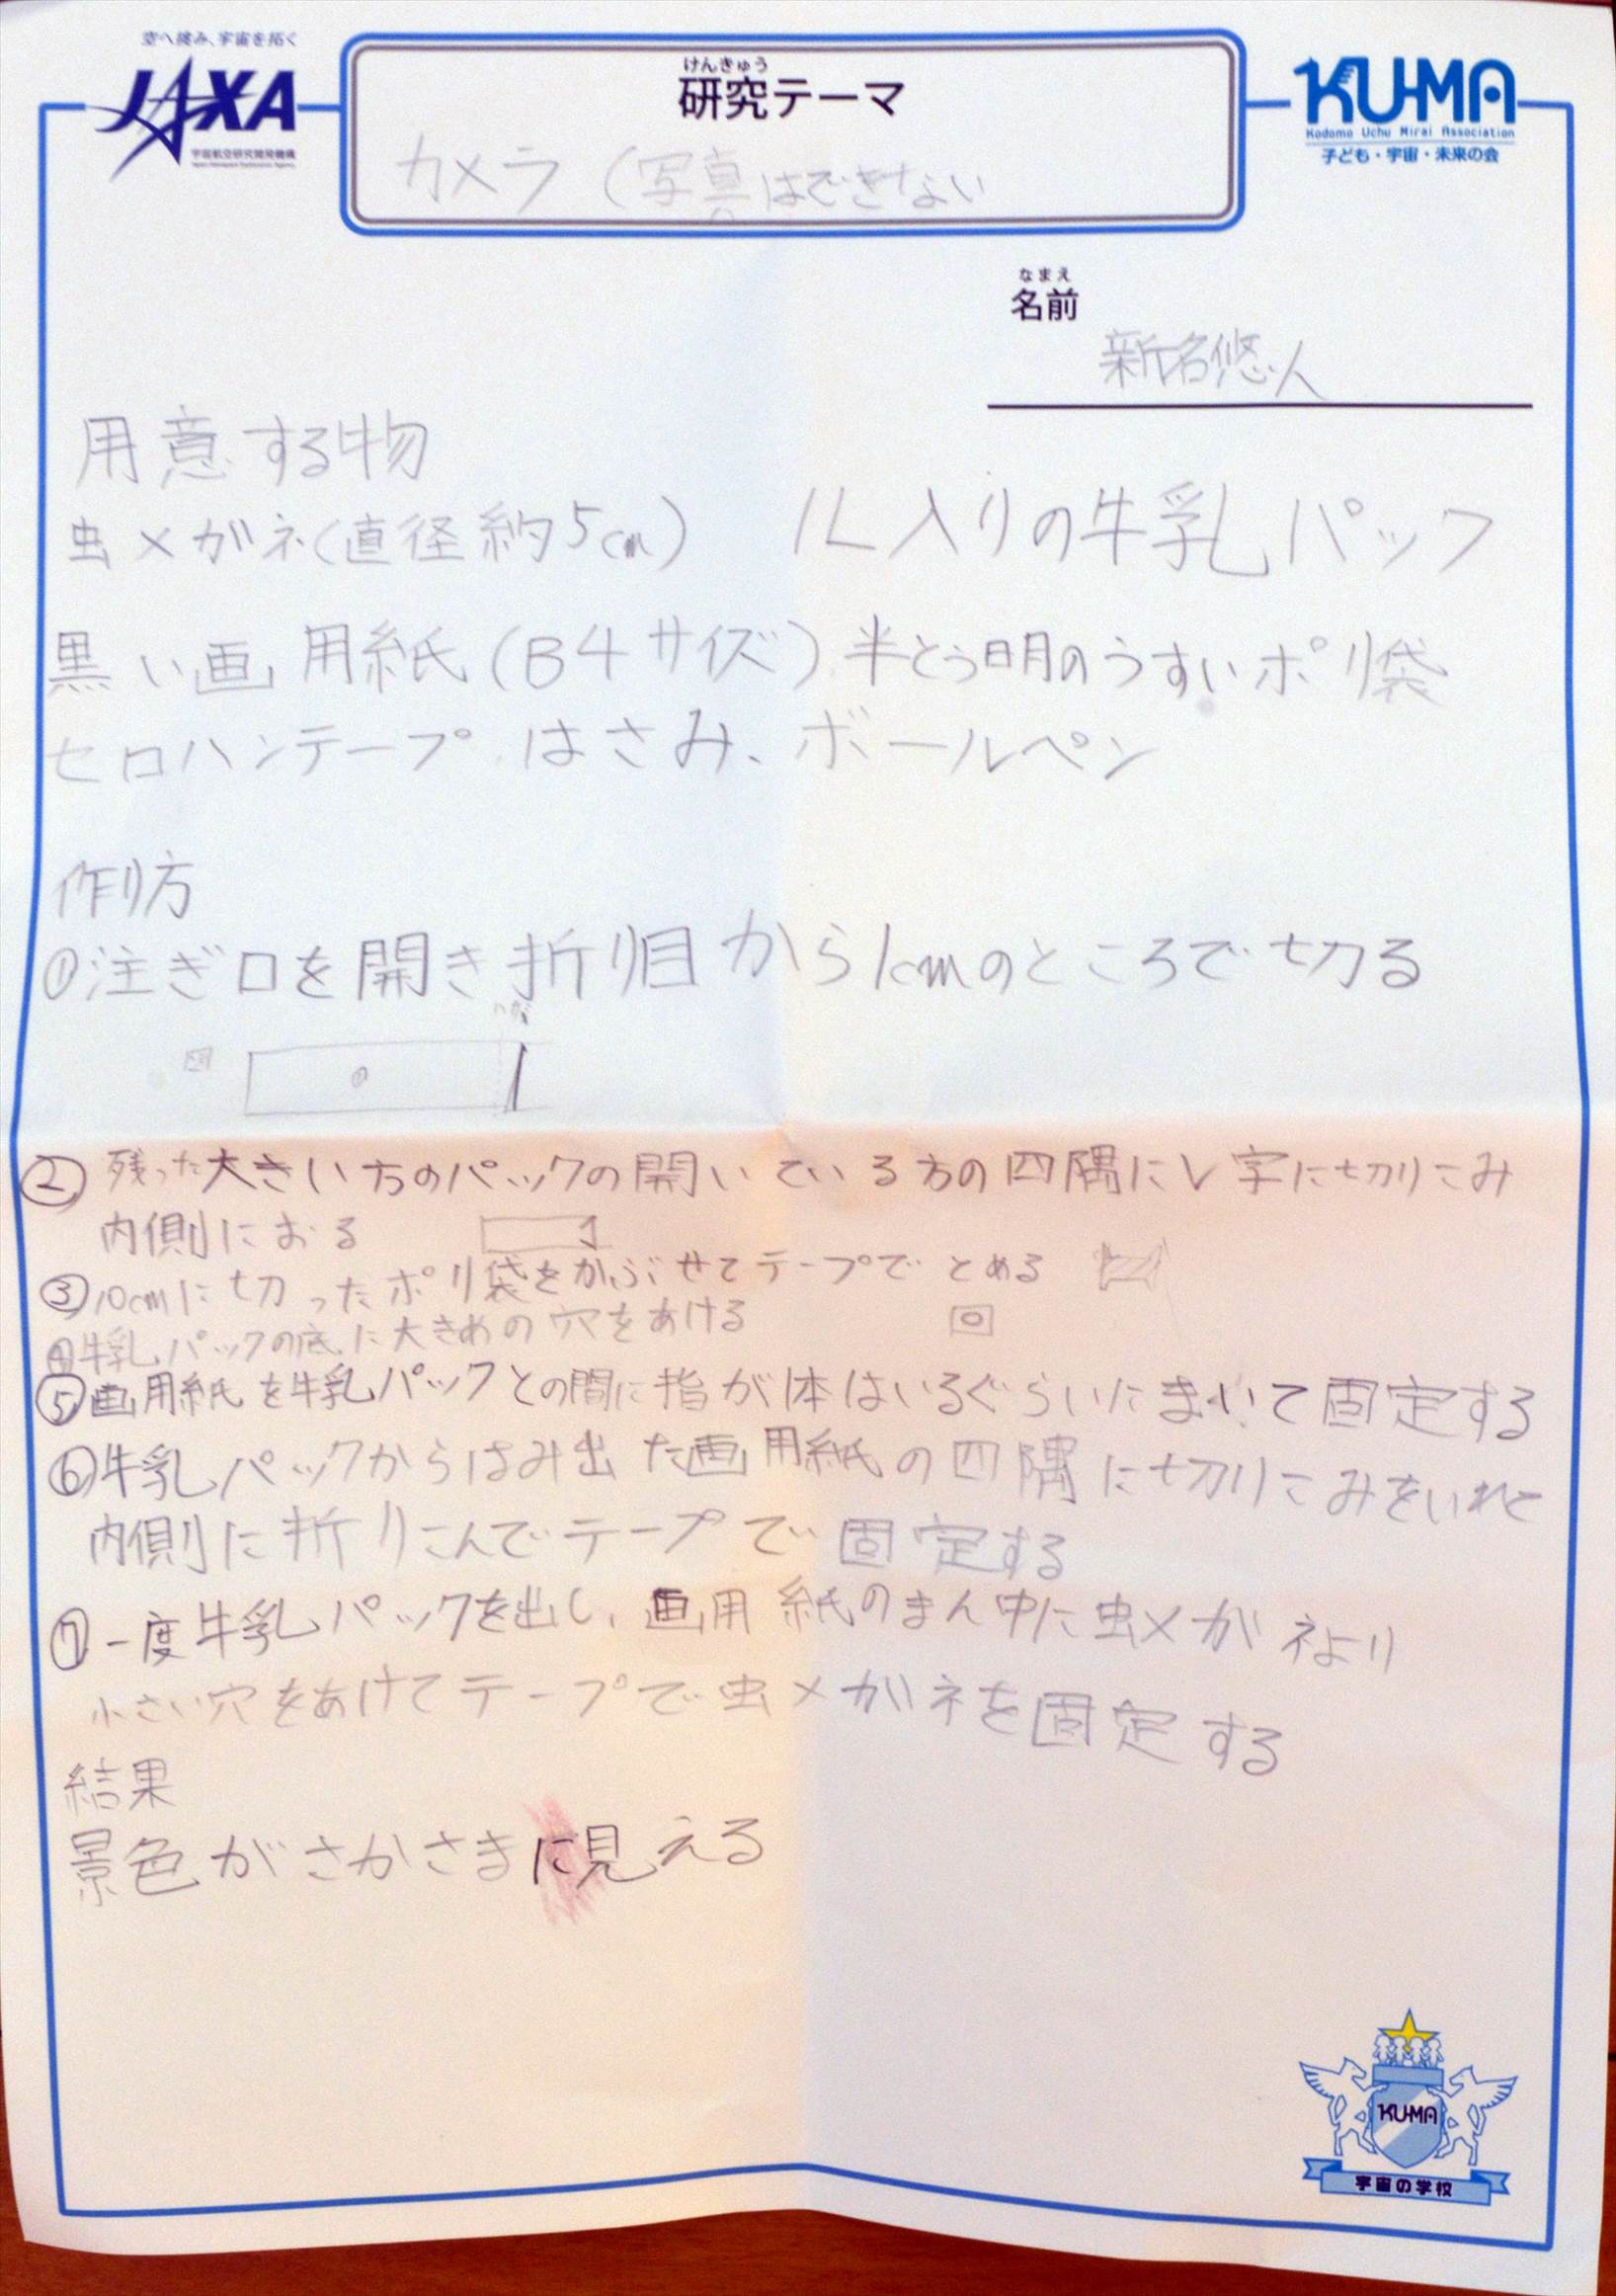 空へ挑み、宇宙を拓く
JAXA
宇宙航空研究開発機構
けんきゅう
研究テーマ
カメラ（写真はできない
KU-MA
Kodomo Uchu Mirai Association
子ども・宇宙・未来の会
なまえ
名前
新名悠人
用意する物
虫メガネ（直径約5cm）　1L入りの牛乳パック
黒い画用紙（B4サイズ）半とう明のうすいポリ袋
セロハンテープ、はさみ、ボールペン
作り方
①注ぎ口を開き折り目から1cmのところで切る
②残った大きい方のパックの開いている方の四隅にV字に切りこみ
内側におる
③10cmに切ったポリ袋をかぶせてテープでとめる
④牛乳パックの底に大きめの穴をあける
⑤画用紙を牛乳パックとの間に指が1本はいるぐらいにまいて固定する
⑥牛乳パックからはみ出た画用紙の四隅に切りこみをいれて
内側に折りこんでテープで固定する
⑦一度牛乳パックを出し、画用紙のまん中に虫メガネより
小さい穴をあけてテープで虫メガネを固定する
結果
景色がさかさまに見える
KU-MA
宇宙の学校